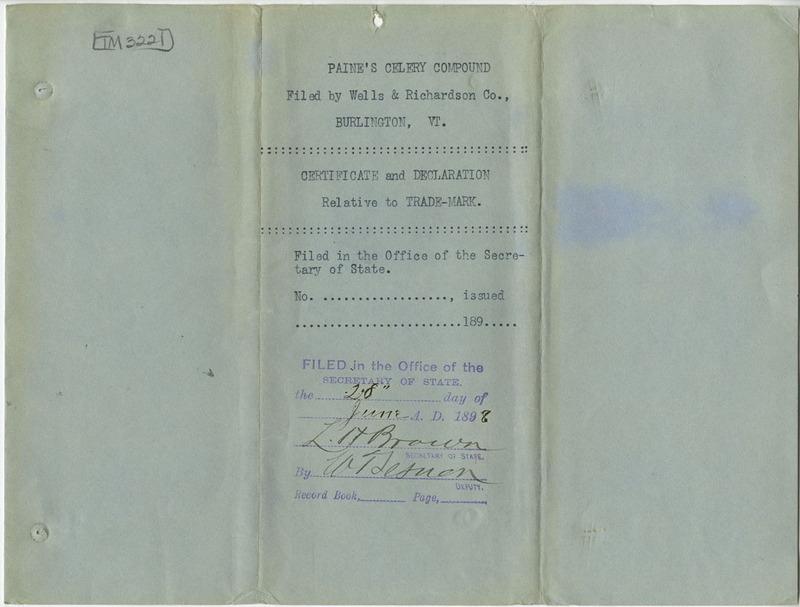 TM 3221
PAINE'S CELERY COMPOUND
Filed by Wells & Richardson Co.,
BURLINGTON, VT.
CERTIFICATE and DECLARATION
Relative to TRADE-MARK.
Filed in the Office of the Secre-
tary of State.
No. .................., issued
.......................189.....
FILED in the Office of the
SECRETARY OF STATE.
the 28" day of
June A. D. 1898
L. H Brown
SECRETARY OF STATE.
By
DEPUTY.
Record Book, Page,